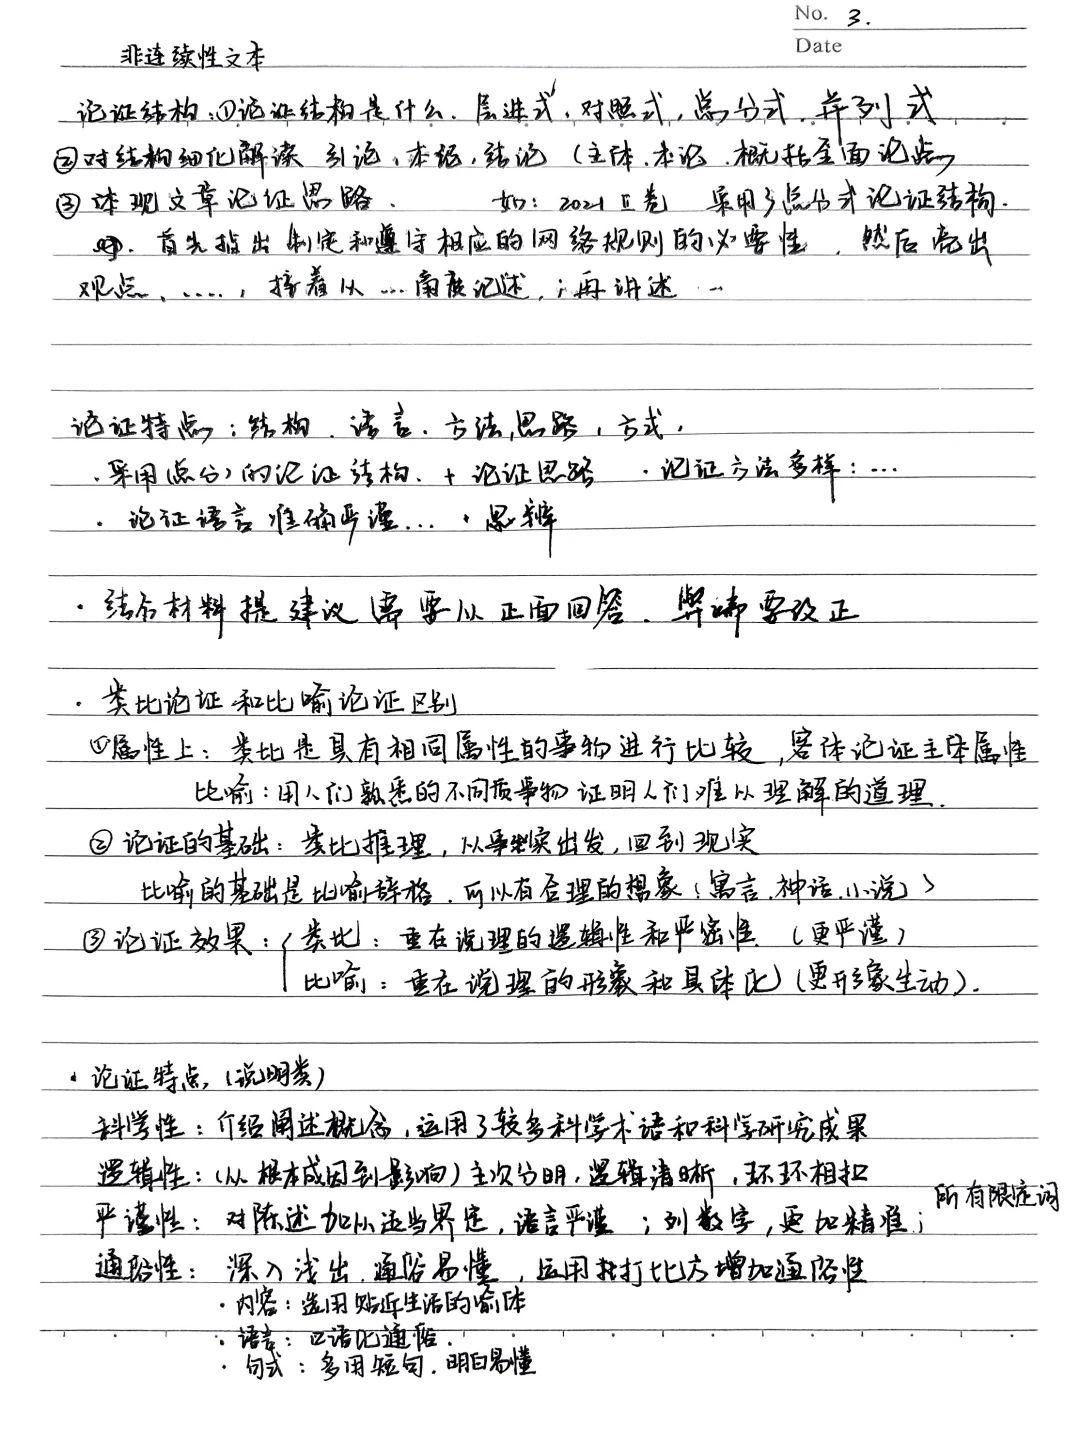 No. 3.
Date
非连续性文本
论证结构:①论证结构是什么、层进式、对照式,总分式、并列式
②对结构细化解读 引论、本论,结论(主体、本论、概括全面论点)
③体现文章论证思路、 如:2021 II卷 采用了总分式论证结构.
首先指出制定和遵守相应的网络规则的必要性,然后亮出
观点、……,接着从…角度论述,;再讲述 …
论证特点:结构、语言、方法,思路、方式,
·采用(总分)的论证结构、+论证思路 ·论证方法多样:…
·论证语言准确严谨… ·思辨
·结合材料提建议需要从正面回答、弊端要改正
·类比论证和比喻论证区别
①属性上:类比是具有相同属性的事物进行比较,客体论证主体属性
比喻:用人们熟悉的不同质事物证明人们难以理解的道理.
②论证的基础:类比推理,从事实出发,回到现实
比喻的基础是比喻辞格、可以有合理的想象(寓言、神话、小说)
③论证效果:{类比:重在说理的逻辑性和严密性(更严谨)
比喻:重在说理的形象和具体化(更形象生动).
·论证特点(说明类)
科学性:介绍阐述概念,运用了较多科学术语和科学研究成果
逻辑性:(从根本成因到影响)主次分明,逻辑清晰,环环相扣
所有限定词
严谨性:对陈述加以适当界定,语言严谨;列数字,更加精准;
通俗性:深入浅出、通俗易懂,运用打比方增加通俗性
·内容:选用贴近生活的喻体
·语言:口语化通俗.
·句式:多用短句、明白易懂